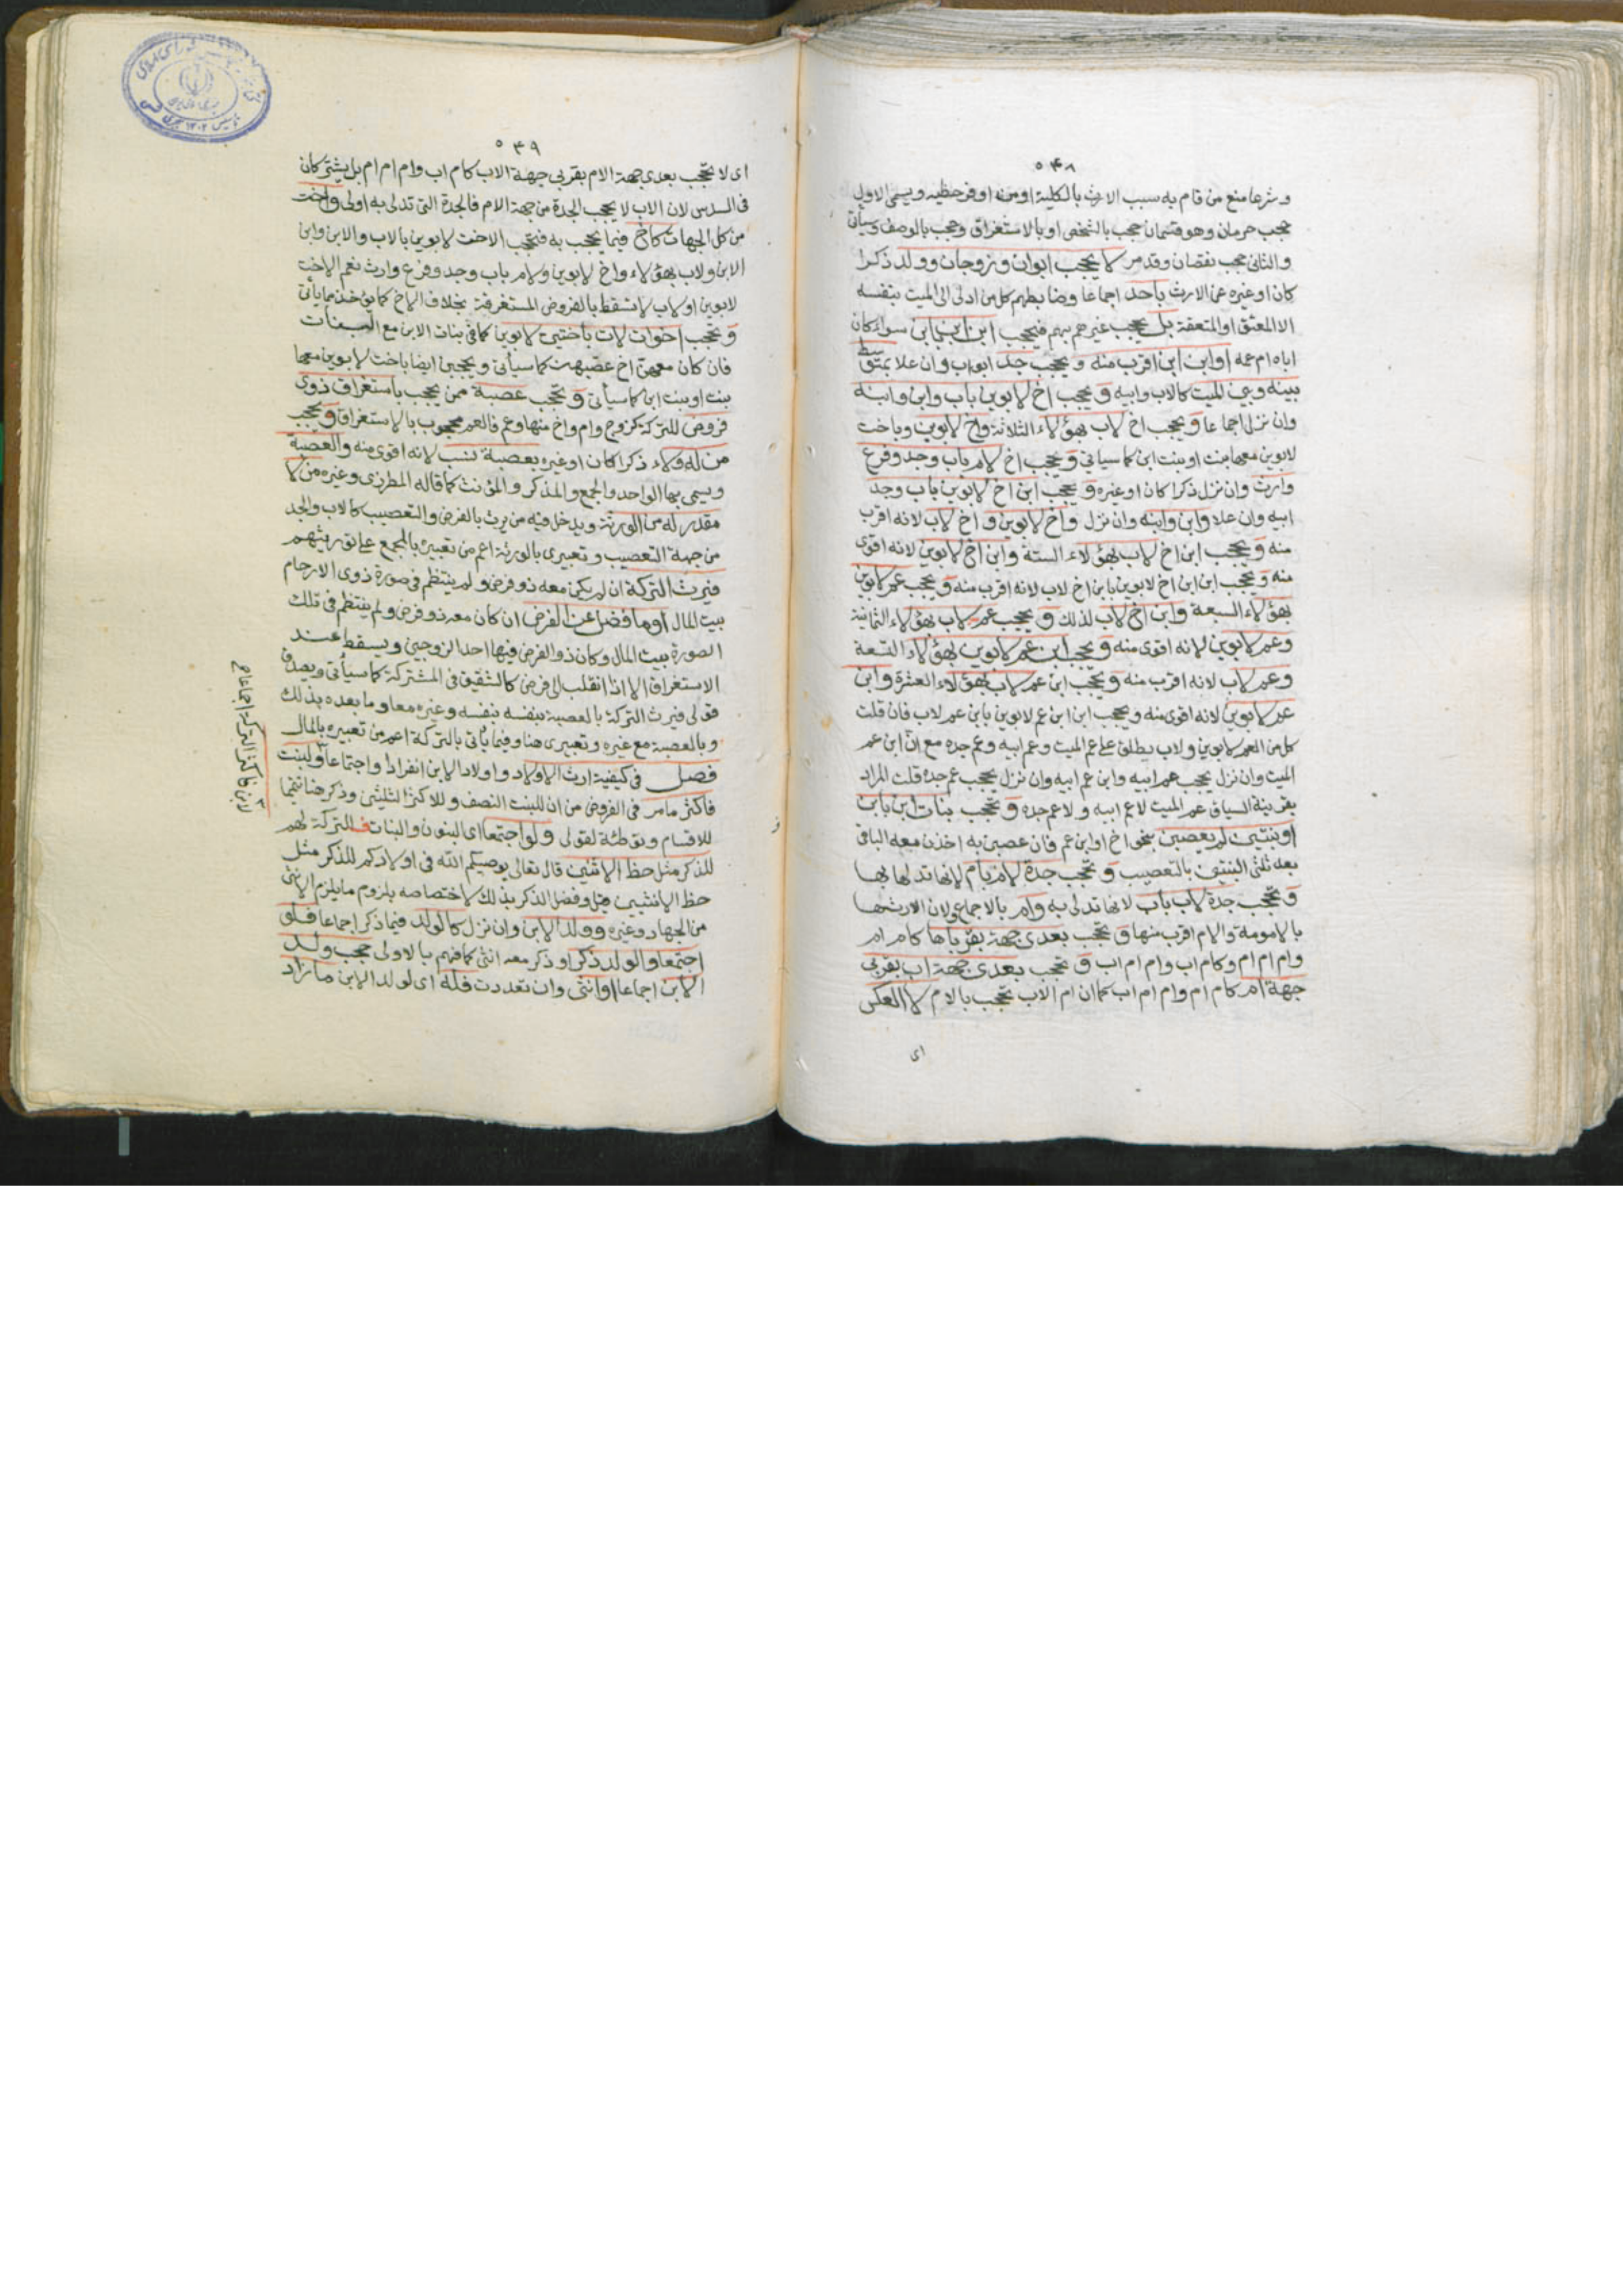 ٥٤٨
وشرعا منع من قام به سبب الارث بالكلية او من اوفر حظيه ويسمى الاول
حجب حرمان وهو قسمان حجب بالشخص او بالاستغراق وحجب بالوصف وسيأتى
والثانى حجب نقصان وقد مر لا يحجب ابوان وزوجان وولد ذكرا
كان او غيره عن الارث باحد اجماعا وضابطهم كل من ادلى الى الميت بنفسه
الا المعتق او المعتقة بل يحجب غيرهم بهم فيحجب ابن ابن بابن سواء كان
اباه ام عمه او ابن ابن اقرب منه ويحجب جد ابو اب وان علا بمتوسط
بينه وبين الميت كالاب وابيه ويحجب اخ لابوين باب وابن وابنه
وان نزل اجماعا ويحجب اخ لاب بهؤلاء الثلاثة واخ لابوين وباخت
لابوين معها بنت او بنت ابن كما سياتى ويحجب اخ لام باب وجد وفرع
وارث وان نزل ذكرا كان او غيره ويحجب ابن اخ لابوين باب وجد
ابيه وان علا وابن وابنه وان نزل واخ لابوين واخ لاب لانه اقرب
منه ويحجب ابن اخ لاب بهؤلاء الستة وابن اخ لابوين لانه اقوى
منه ويحجب ابن ابن اخ لابوين بابن اخ لاب لانه اقرب منه ويحجب عم لابوين
بهؤلاء السبعة وابن اخ لاب لذلك ويحجب عم لاب بهؤلاء الثمانية
وعم لابوين لانه اقوى منه ويحجب ابن عم لابوين بهؤلاء التسعة
وعم لاب لانه اقرب منه ويحجب ابن عم لاب بهؤلاء العشرة وابن
عم لابوين لانه اقوى منه ويحجب ابن ابن عم لابوين بابن عم لاب فان قلت
كل من العم لابوين ولاب يطلق على عم الميت وعم ابيه وعم جده مع ان ابن عم
الميت وان نزل يحجب عم ابيه وابن عم ابيه وان نزل يحجب عم جده قلت المراد
بقرينة السياق عم الميت لا عم ابيه ولا عم جده وتحجب بنات ابن بابن
او بنتين لم يعصبن بنحو اخ او ابن عم فان عصبن به اخذن معه الباقى
بعد ثلثى البنتين بالتعصيب وتحجب جدة لام بام لانها تدلى بها
وتحجب جدة لاب باب لانها تدلى به وام بالاجماع ولان الارث لها
بالامومة والام اقرب منها وتحجب بعدى جهة بقرباها كام ام
وام ام ام وكام اب وام ام اب وتحجب بعدى جهة اب بقربى
جهة ام كام ام وام ام اب كما ان ام الاب تحجب بالام لا العكس
اى
٥٤٩
اى لا تحجب بعدى جهة الام بقربى جهة الاب كام اب وام ام ام بل يشتركان
فى السدس لان الاب لا يحجب الجدة من جهة الام فالجدة التى تدلى به اولى واخت
من كل الجهات كاخ فيما يحجب به فتحجب الاخت لابوين بالاب والابن وابن
الابن ولاب بهؤلاء واخ لابوين ولام باب وجد وفرع وارث نعم الاخت
لابوين او لاب لا تسقط بالفروض المستغرقة بخلاف الاخ كما يؤخذ مما يأتى
وتحجب اخوات لاب باختين لابوين كما فى بنات الابن مع البنات
فان كان معهن اخ عصبهن كما سيأتى ويحجبن ايضا باخت لابوين معها
بنت او بنت ابن كما سيأتى وتحجب عصبة ممن يحجب باستغراق ذوى
فروض للتركة كزوج وام واخ منها وعم فالعم محجوب بالاستغراق ويحجب
من له ولاء ذكرا كان او غيره بعصبة نسب لانه اقوى منه والعصبة
ويسمى بها الواحد والجمع والمذكر والمؤنث كما قاله المطرزى وغيره من لا
مقدر له من الورثة ويدخل فيه من يرث بالفرض والتعصيب كالاب والجد
من جهة التعصيب وتعبيرى بالورثة اعم من تعبيره بالمجمع على توريثهم
فيرث التركة ان لم يكن معه ذو فرض ولم ينتظم فى صورة ذوى الارحام
بيت المال او ما فضل عن الفرض ان كان معه ذو فرض ولم ينتظم فى تلك
الصورة بيت المال وكان ذو الفرض فيها احد الزوجين ويسقط عند
الاستغراق الا اذا انقلب الى فرض كالشقيق فى المشتركة كما سيأتى ويصدق
قولى فيرث التركة بالعصبة بنفسه بنفسه وغيره معا وما بعده بذلك
وبالعصبة مع غيره وتعبيرى هنا وفيما يأتى بالتركة اعم من تعبيره بالمال
فصل فى كيفية ارث الاولاد واولاد الابن انفرادا واجتماعا ولبنت
فاكثر ما مر فى الفروض من ان للبنت النصف وللاكثر الثلثين وذكر هنا تتميما
للاقسام وتوطئة لقولى ولو اجتمعا اى البنون والبنات فالتركة لهم
للذكر مثل حظ الانثيين قال تعالى يوصيكم الله فى اولادكم للذكر مثل
حظ الانثيين قيل وفضل الذكر بذلك لاختصاصه بلزوم ما يلزم الانثى
من الجهاد وغيره وولد الابن وان نزل كالولد فيما ذكر اجماعا فلو
اجتمعا والولد ذكر او ذكر معه انثى كما فهم بالاولى حجب ولد
الابن اجماعا او انثى وان تعددت فله اى لولد الابن ما زاد
لابن فاكثر التركة اجماعا صح